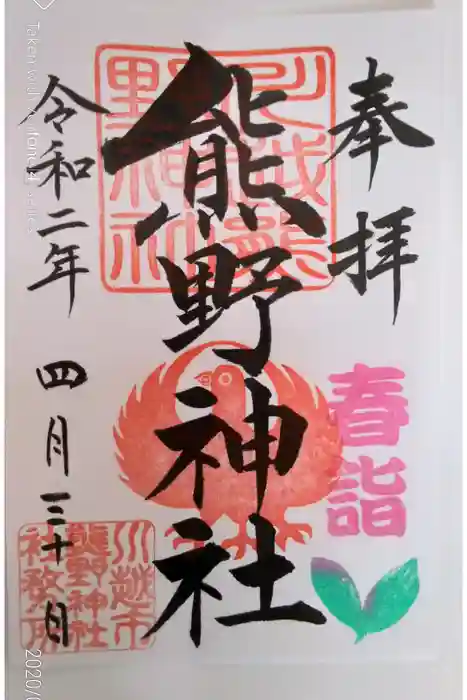 奉拝
春詣
川越熊野神社
熊野神社
令和二年 四月三十日
川越市
熊野神社
社務所